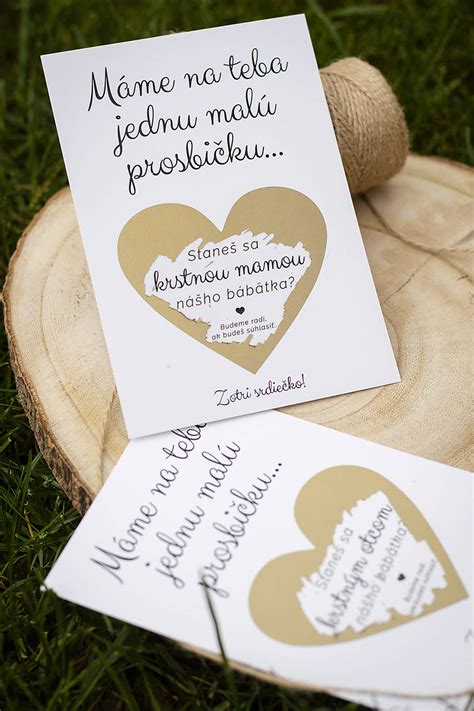 Máme na teba
jednu malú
prosbičku...
Staneš sa
krstnou mamou
nášho bábätka?
Budeme radi,
ak budeš súhlasiť.
Zotri srdiečko!
Máme na teba
jednu malú
prosbičku...
Staneš sa
krstným otcom
nášho bábätka?
Budeme radi,
ak budeš súhlasiť.